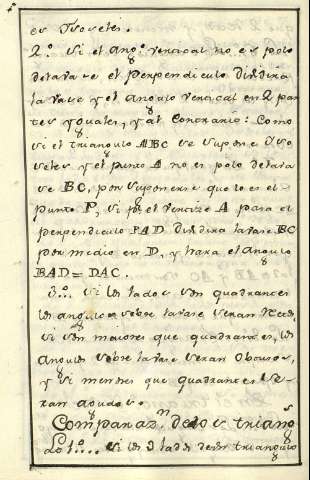 es Ysoceles.
2.º Si el Ang.º vertical no es polo
de la vase el perpendiculo dividira
la vase y el Angulo vertical en 2 par
tes yguales, y al Contrario: Como
si el triangulo ABC se supone Yso
celes y el punto A no es polo de la va
se BC, por suponerse que lo es el
punto P, si por el vertice A pasa el
perpendiculo PAD dividira la vase BC
por medio en D, y hara el Angulo
BAD = DAC.
3.º Si los lados son quadrantes
los angulos sobre la vase seran Rectos,
si son maiores que quadrantes, los
Angulos sobre la vase seran Obtusos,
y si menores que quadrantes se
ran agudos.
Comparaz.n de dos triang.s
Lo 1.º Si los 3 lados de un triangulo